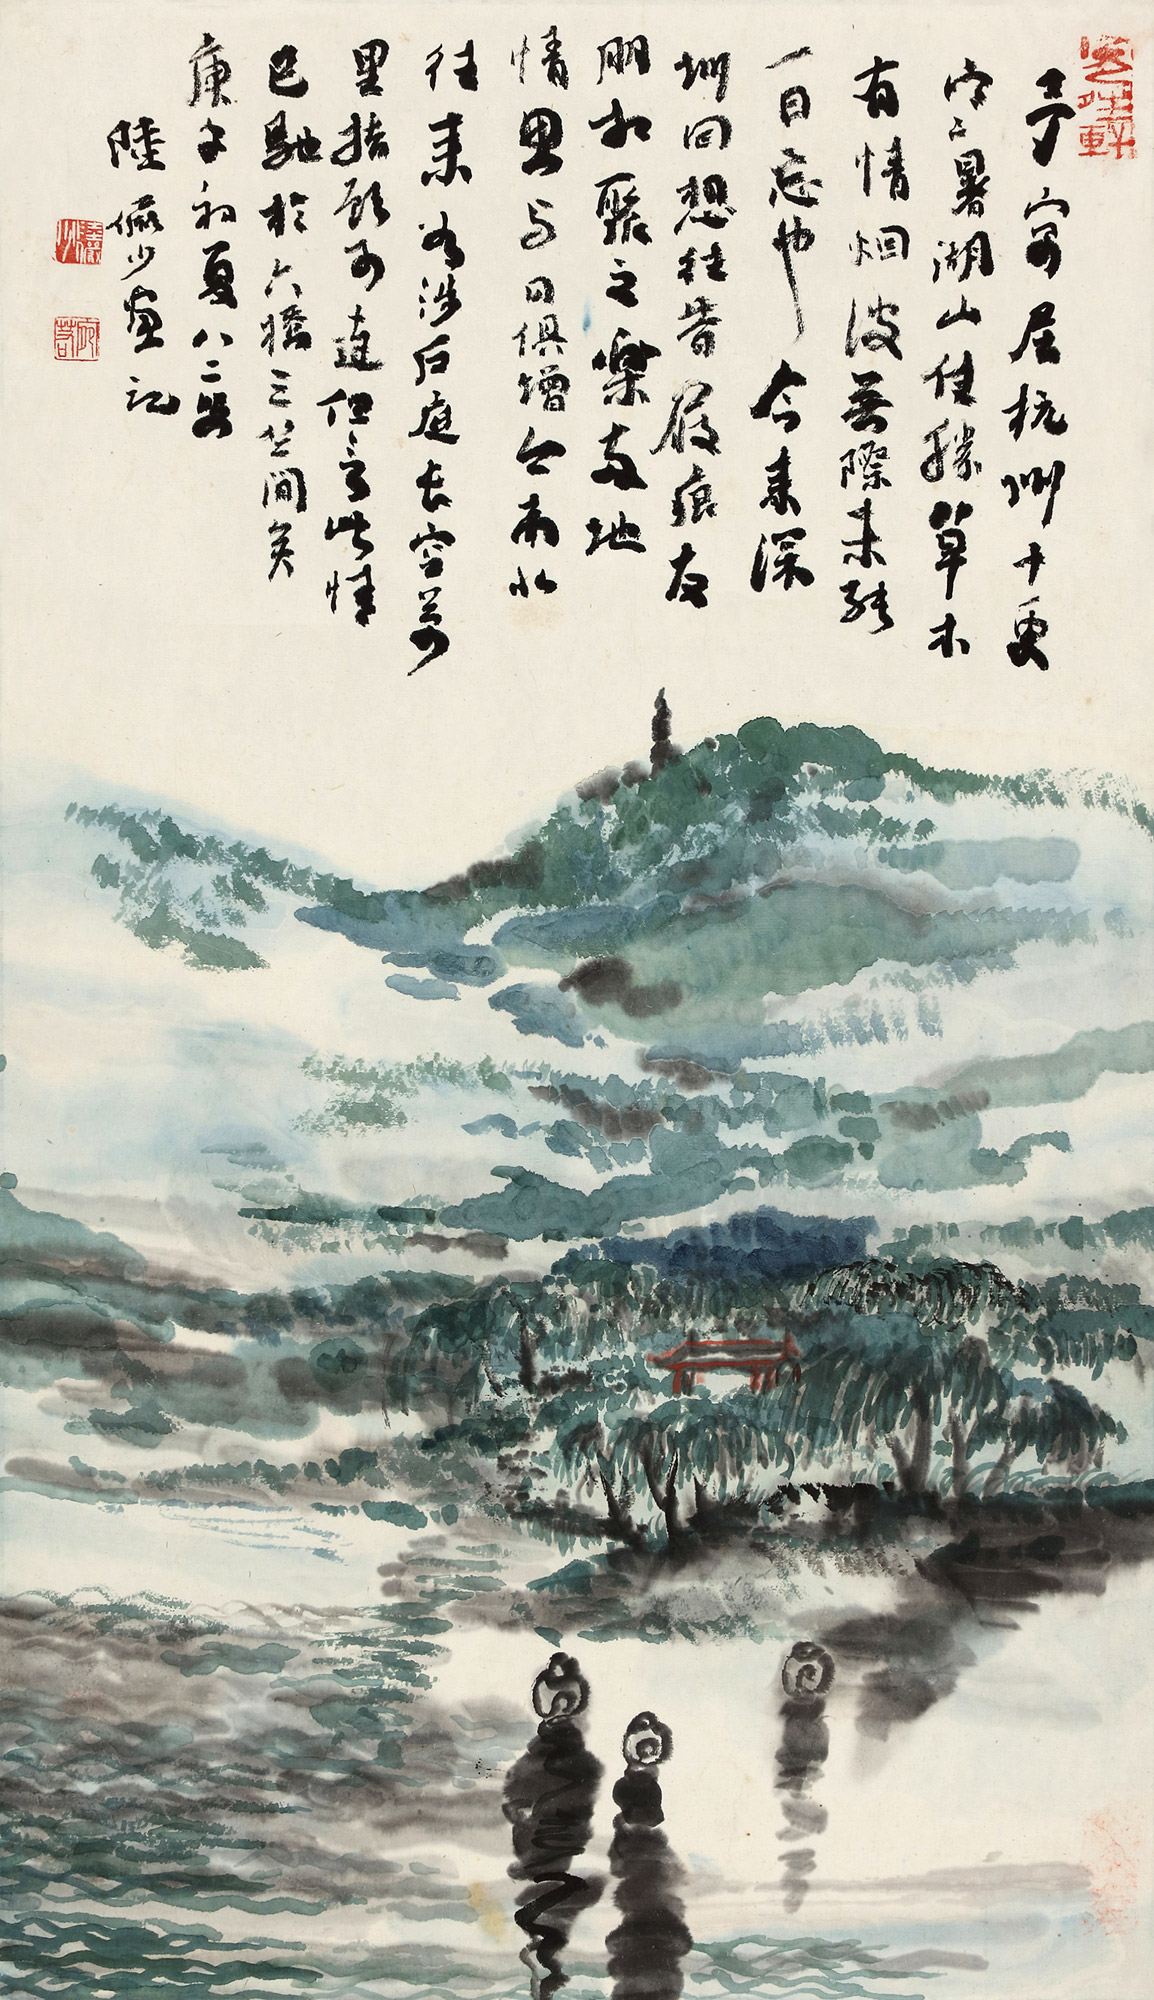 予寓居杭州十更
寒暑湖山佳勝草木
有情烟波無際未能
一日忘也今来深
圳回想往昔屐痕友
朋相聚之樂與地
情思与日俱增今南北
往来如涉后庭长空万
里指顾可达但言此情
已馳於六橋三竺間矣
庚午初夏八二叟
陸儼少画記